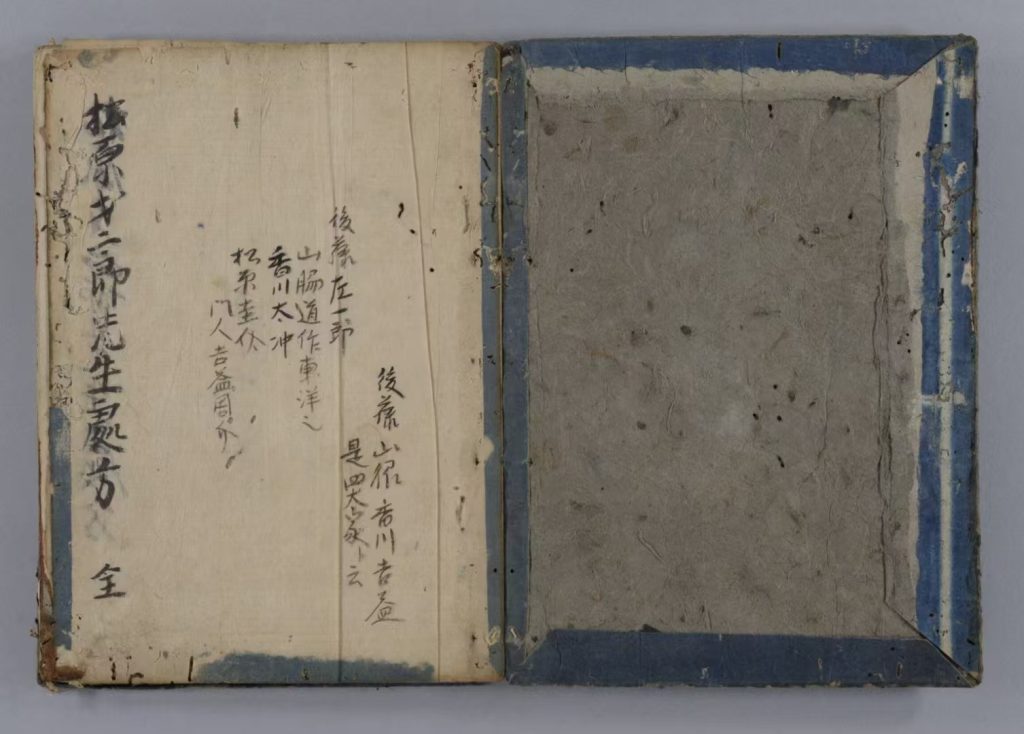 後藤 山脇 香川 吉益
是四大家ト云
後藤左一郎
山脇道作東洋也
香川太冲
松原圭介
門人吉益周介
松原才二郎先生處方 全